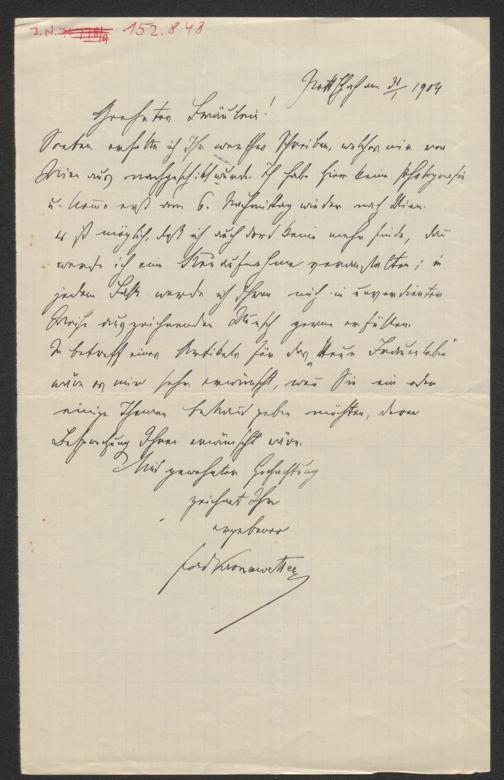 J.N. 152.848
am 31/1 1904
Geehrtes Fräulein!
Soeben erhalte ich Ihr werthes Schreiben, welches mir von
Wien aus nachgeschickt wurde. Ich habe hier keine Photografie
u. komme erst am 6. Nachmittag wieder nach Wien.
es ist möglich, daß ich auch dort keine mehr finde, dan
werde ich eine Neuaufnahme veranstalten; in
jedem Falle werde ich Ihren mich in unverdienter
Weise auszeichnenden Wunsch gerne erfüllen.
In betreff eines Artikels für das "Neue Frauenleben"
wäre es mir sehr erwünscht, wenn Sie ein oder
einige Themen bekannt geben möchten, deren
Besprechung Ihnen erwünscht wäre.
Mit gewohnter Hochachtung
zeichnet Ihr
ergebener
Ferd Kronawetter